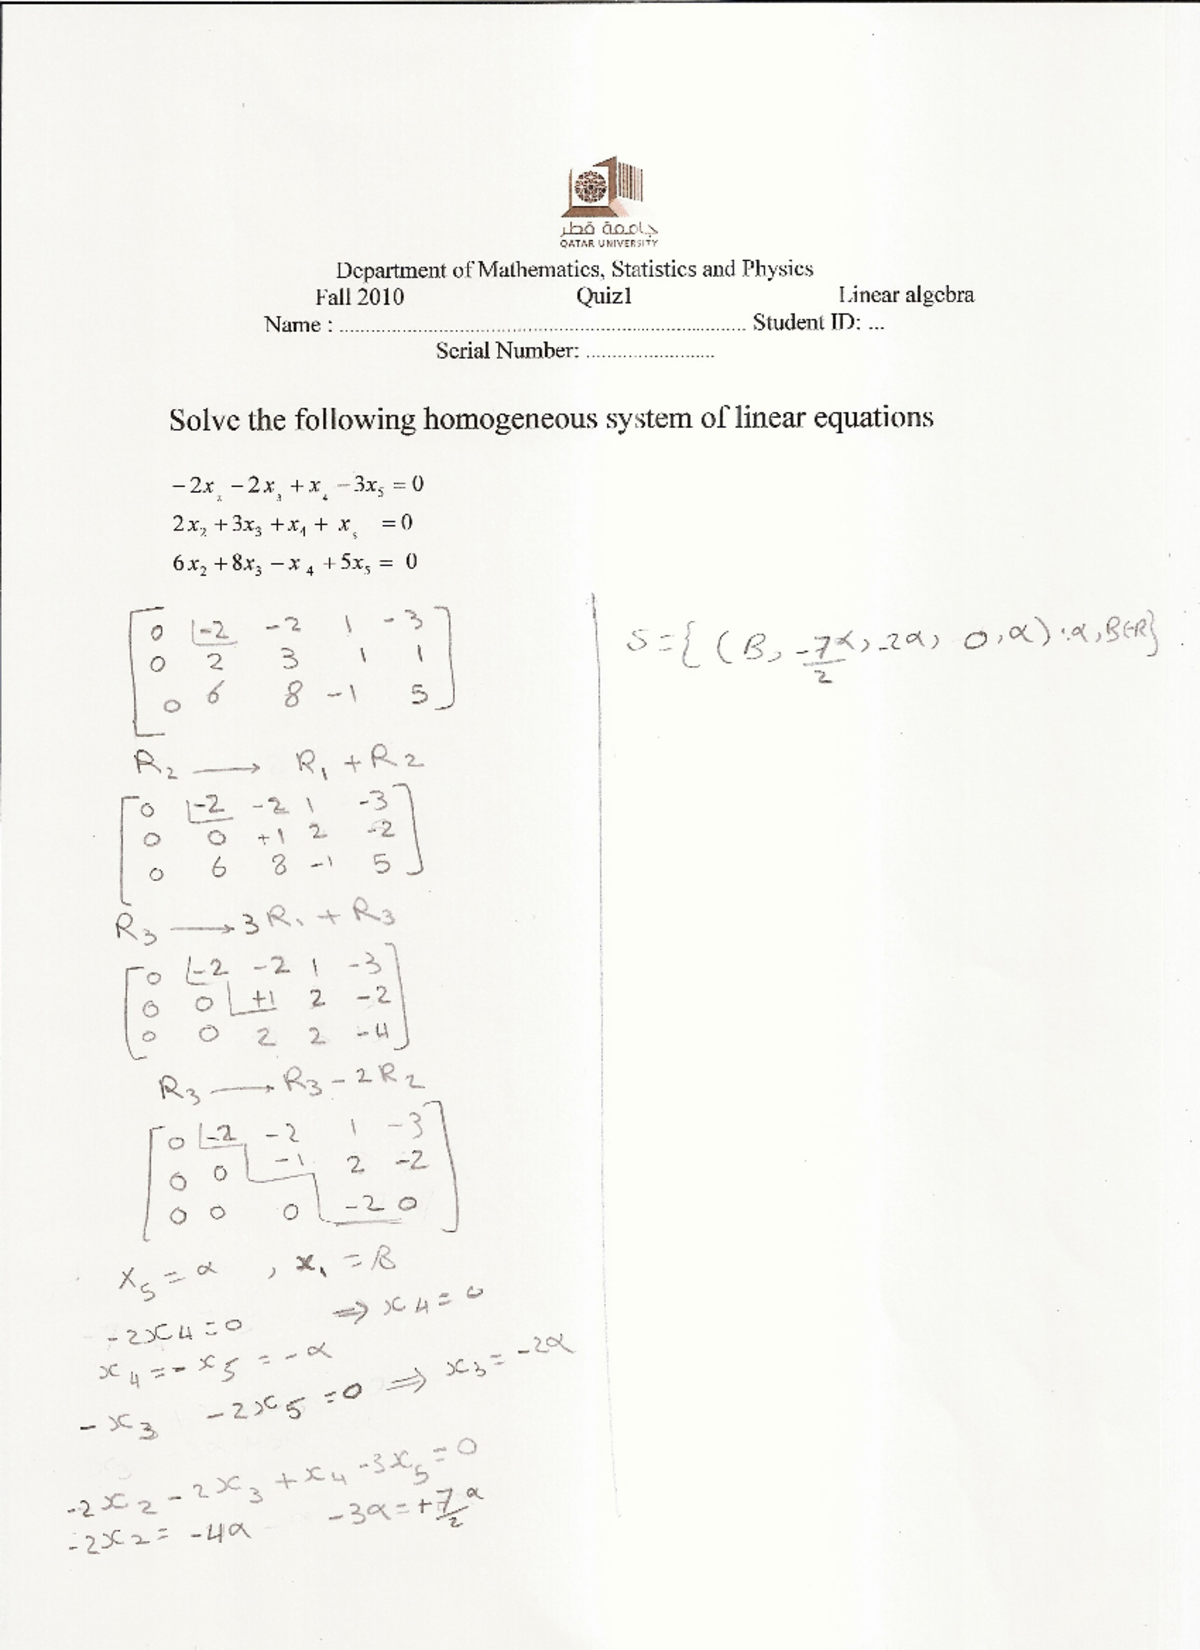 جامعة قطر
QATAR UNIVERSITY
Department of Mathematics, Statistics and Physics
Fall 2010 Quiz1 Linear algebra
Name : ............................................................................. Student ID: ...
Serial Number: .........................
Solve the following homogeneous system of linear equations
−2x₂ −2x₃ +x₄ −3x₅ = 0
2x₂ +3x₃ +x₄ + x₅ = 0
6x₂ +8x₃ −x₄ +5x₅ = 0
0 -2 -2 1 -3
0 2 3 1 1
0 6 8 -1 5
R₂ → R₁ + R₂
0 -2 -2 1 -3
0 0 +1 2 -2
0 6 8 -1 5
R₃ → 3R₁ + R₃
0 -2 -2 1 -3
0 0 +1 2 -2
0 0 2 2 -4
R₃ → R₃ - 2R₂
0 -2 -2 1 -3
0 0 -1 2 -2
0 0 0 -2 0
x₅ = α , x₁ = B
-2x₄ = 0 ⇒ x₄ = 0
x₄ = - x₅ = -α
-x₃ -2x₅ = 0 ⇒ x₃ = -2α
-2x₂ - 2x₃ + x₄ -3x₅ = 0
-2x₂ = -4α -3α = +7/2 α
S = {(B, -7/2 α, -2α, 0, α) : α, B ∈ R}